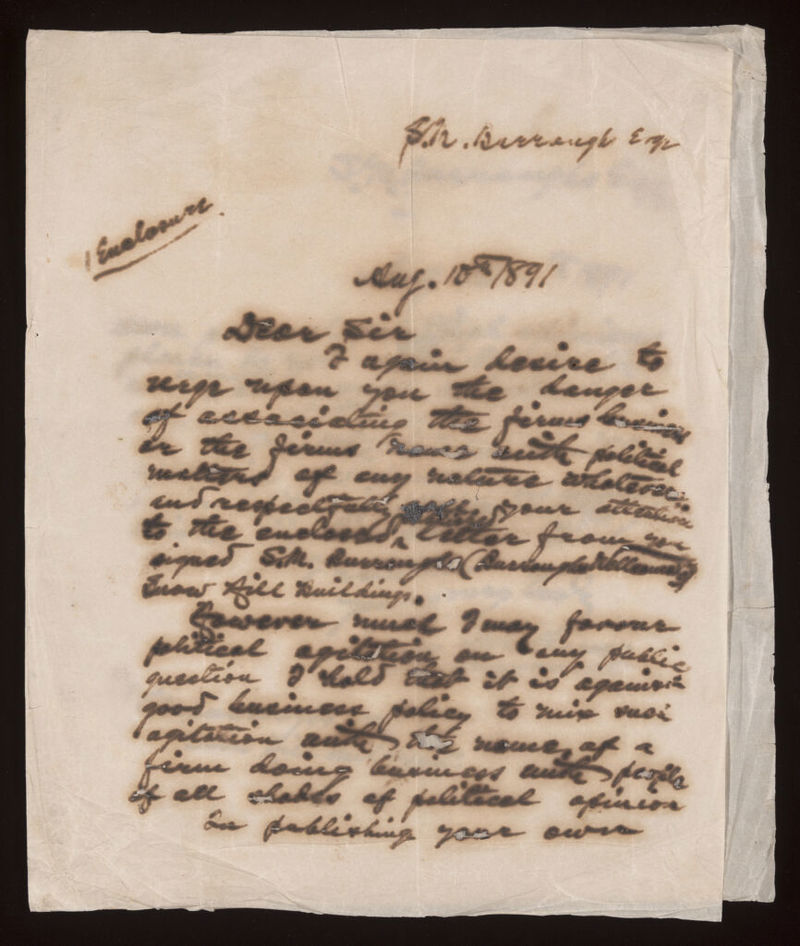 S.M. Burroughs Esqr
1 Enclosure.
Aug. 10th 1891
Dear Sir
I again desire to
urge upon you the danger
of associating the firms business
or the firms name with political
matters of any nature whatever
and respectfully your attention
to the enclosed letter from you
signed S.M. Burroughs (Burroughs Wellcome &
Snow Hill Buildings.
However much I may favour
political agitation on any public
question I hold that it is against
good business policy to mix such
agitation with the name of a
firm doing business with people
of all shades of political opinion
In publishing your own